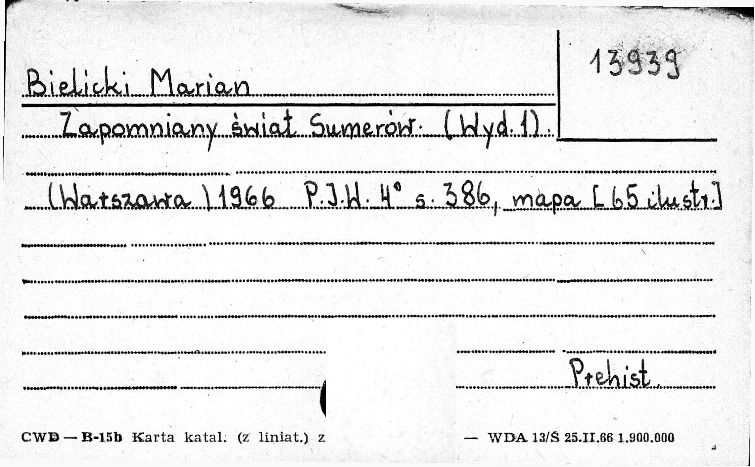 13939
Bielicki Marian
Zapomniany świat Sumerów. (Wyd. 1).
(Warszawa) 1966 P.I.W. 4° s. 386, mapa [65 ilustr.]
Prehist.
CWD — B-15b Karta katal. (z liniat.) z — WDA 13/Ś 25.II.66 1.900.000